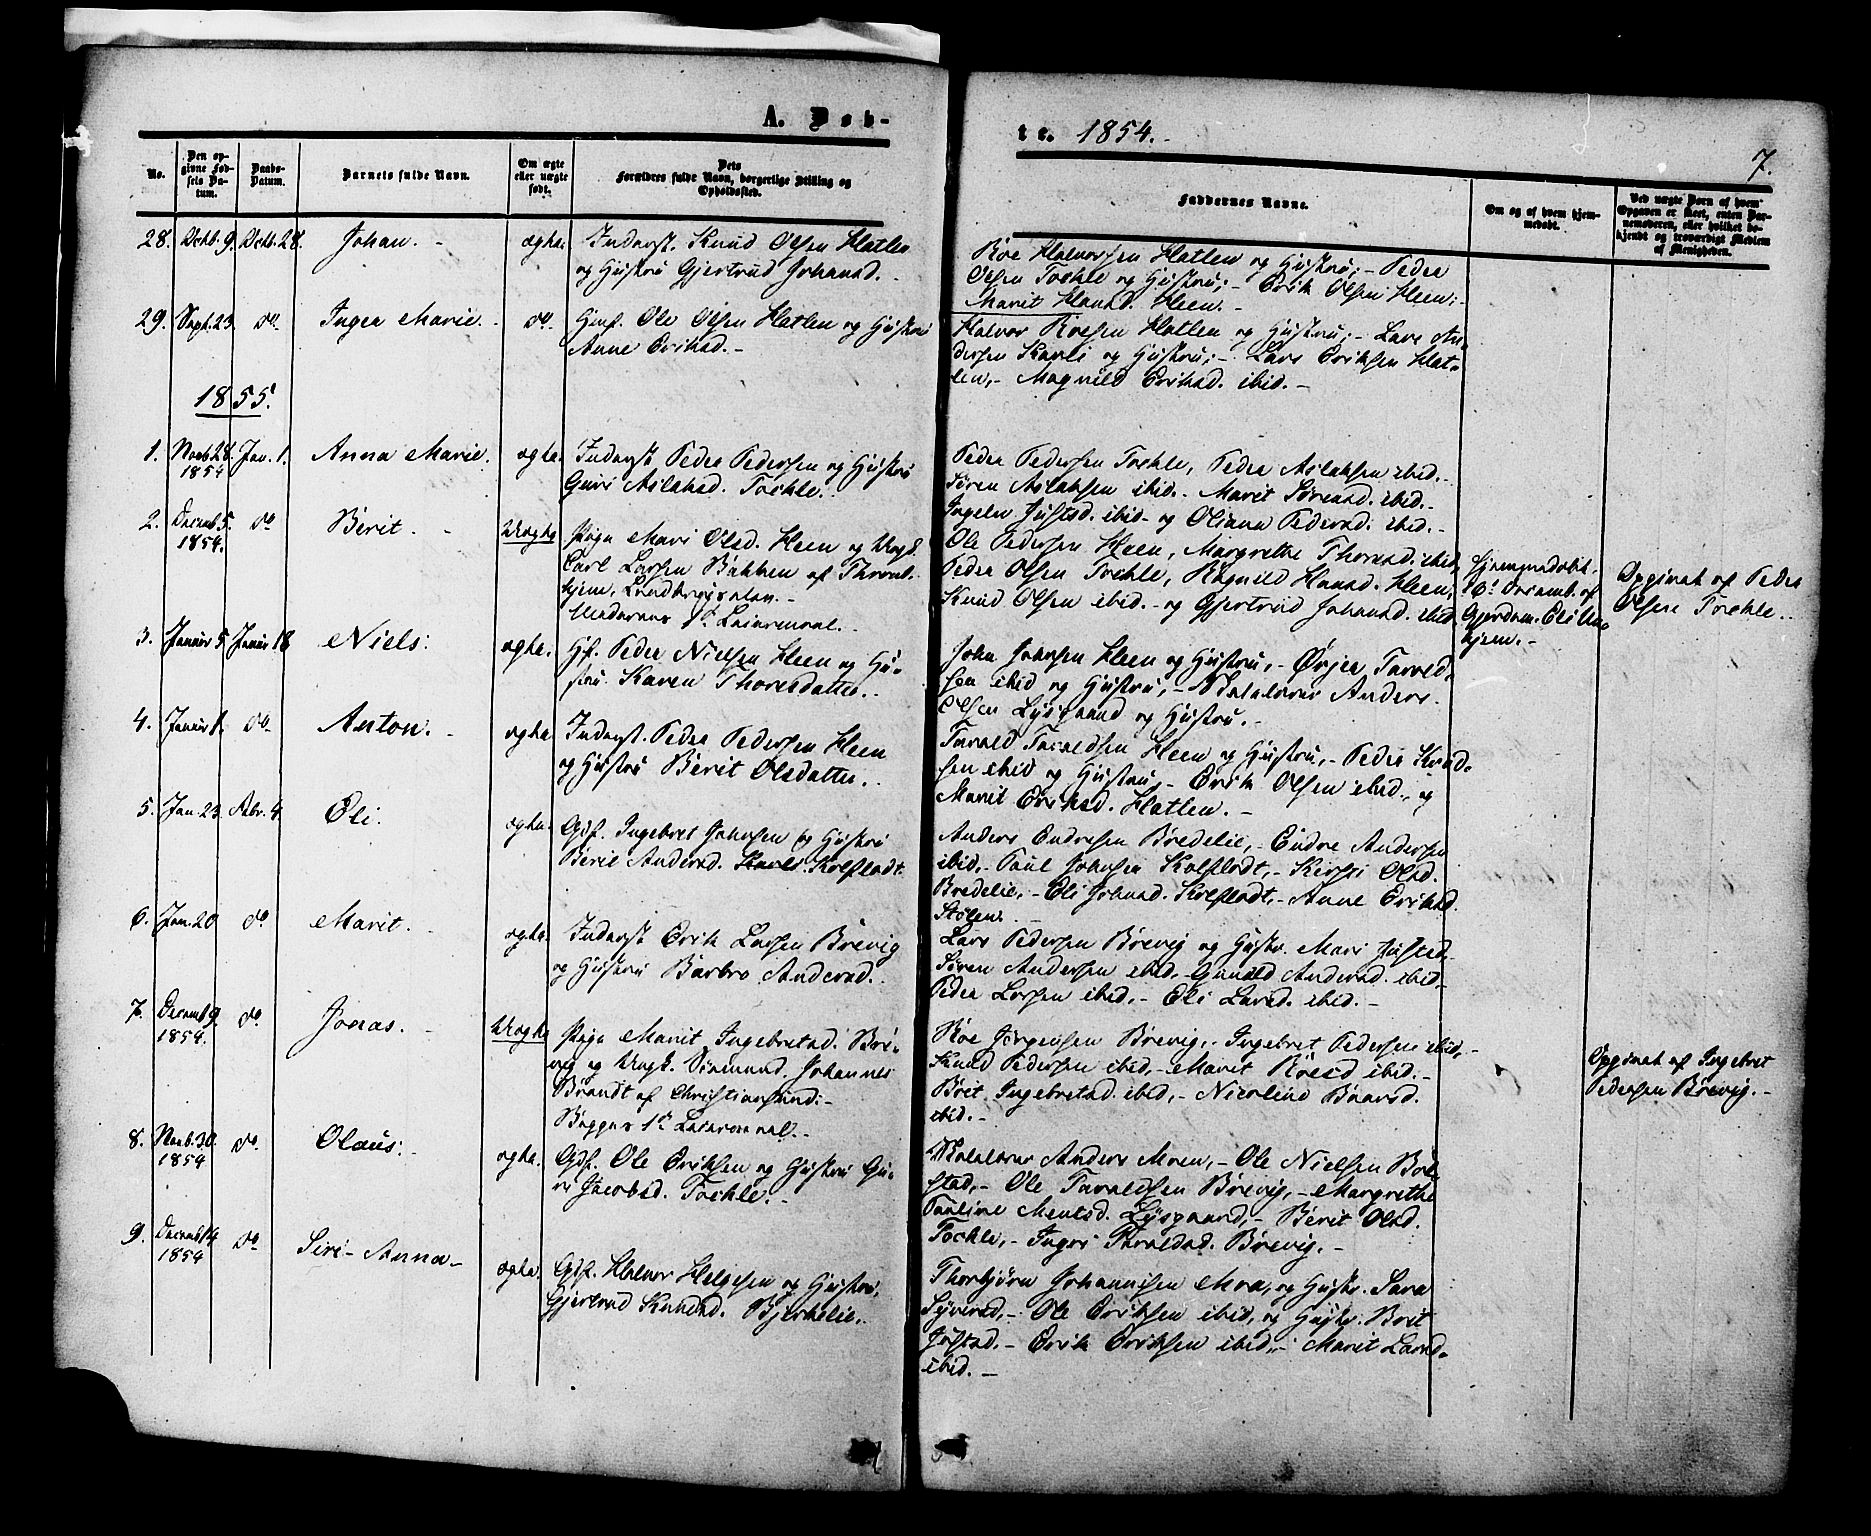 A. Døb-
te. 1854.
7.
No.
Den op-
givne Fød-
sels Da-
tum.
Daabs-
Datum.
Barnets fulde Navn.
Om ægte
eller uægte
født.
Dets
Forældres fulde Navn, borgerlige Stilling og
Opholdssted.
Faddernes Navne.
Om og af hvem hjem-
medøbt.
Ved uægte Børn af hvem
Opgaven er skeet, enten Bar-
nemoderen, eller hvilket be-
kjendt og troværdigt Medlem
af Menigheden.
28. Octb. 9. Octb. 28. Johan. ægte.
Inderst. Knud Olsen Hatlen
og Hustru Gjertrud Johansd.
Roe Halvorsen Hatlen og Hustru; Peder
Olsen Torhle og Hustru; Erik Olsen Heen;
Marit Hansd. Heen.
29. Sept. 23. do. Inger Marie. do.
Gmf. Ole Olsen Hatlen og Hustru
Anne Eriksd.
Halvor Roesen Hatlen og Hustru; Lars An-
dersen Karli og Hustru; Lars Eriksen Hat-
len, Magnild Eriksd. ibid.
1855.
1. Novb. 28. 1854 Jan. 1. Anna Marie. ægte.
Inderst Peder Pedersen og Hustru
Guri Aslaksd. Torhle.
Peder Pedersen Torhle, Peder Aslaksen ibid.
Søren Aslaksen ibid. Marit Sørensd. ibid.
Ingeln Justsd. ibid og Oliana Pedersd. ibid.
2. Decemb. 5. 1854. do Berit. Uægte
Pige Mari Olsd. Heen og Ungk.
Carl Larsen Bakken af Thrond-
hjem, Landbrugselev.
Moderens 1ste Leiermaal.
Ole Pedersen Heen, Margrethe Thoresd. ibid.
Peder Olsen Torhle, Ragnild Hansd. Heen,
Knud Olsen ibid. og Gjertrud Johansd. ibid.
Hjemmedøbt
16. Decemb. af
Gjordem. Eli Un-
hjem.
Opgivet af Peder
Olsen Torhle.
3. Januar 5 Januar 18 Niels. ægte.
Gf. Peder Nielsen Heen og Hu-
stru Karen Thoresdatter.
John Johnsen Heen og Hustru, Ørjer Tarald-
sen ibid og Hustru, Skolelærer Anders
Olsen Lysgaard og Hustru.
4. Januar 1. do Anton. ægte.
Inderst. Peder Pedersen Heen
og Hustru Berit Olsdatter.
Tarald Taraldsen Heen og Hustru, Peder Knud-
sen ibid og Hustru, Erik Olsen ibid, og
Marit Eriksd. Hatlen.
5. Jan. 23. Febr. 4 Eli. ægte.
Gdf. Ingebret Johnsen og Hustru
Berit Andersd. Kolflødt.
Anders Endresen Brødelie, Endre Andersen
ibid, Paul Johnsen Kolflødt, Kirsti Olsd.
Bredelie, Eli Johnsd. Kolflødt, Anne Eriksd.
Stølen.
6. Jan. 20 do Marit. ægte.
Inderst Erik Larsen Brevig
og Hustru Barbro Andersd.
Lars Pedersen Brevig og Hustr. Mari Justsd.
Søren Andersen ibid, Gunild Andersd. ibid.
Peder Larsen ibid, Eli Larsd. ibid.
7. Decemb. 9. 1854. do Jonas. Uægte
Pige Marit Ingebretsd. Bre-
vig og Ungk. Sivmund Johannes
Brandt af Christiansund.
Begges 1ste Leiermaal.
Roe Jørgensen Brevig, Ingebret Pedersen ibid,
Knud Pedersen ibid, Marit Roesd ibid.
Brit Ingebretsd. ibid, Nicoline Baarsd.
ibid.
Opgivet af Ingebret
Pedersen Brevig.
8. Novb. 30. 1854 do. Olaus. ægte.
Gdf. Ole Eriksen og Hustru Gu-
ri Jacobsd. Torhle.
Skolelærer Anders Moen, Ole Nielsen Bol-
stad, Ole Taraldsen Brevig, Margrethe
Pauline Mentsd. Lysgaard, Berit Olsd.
Torhle, Ingri Taraldsd. Brevig.
9. Decemb. 14 1854 do Siri-Anna ægte.
Gdf. Halvor Helgesen og Hustru,
Gjertrud Knudsd. Bjerkelie.
Thorbjørn Johannesen Moa, og Hustr. Sara
Syversd, Ole Eriksen ibid, og Hustr. Brit
Justsd, Erik Eriksen ibid, Marit Larsd.
ibid.